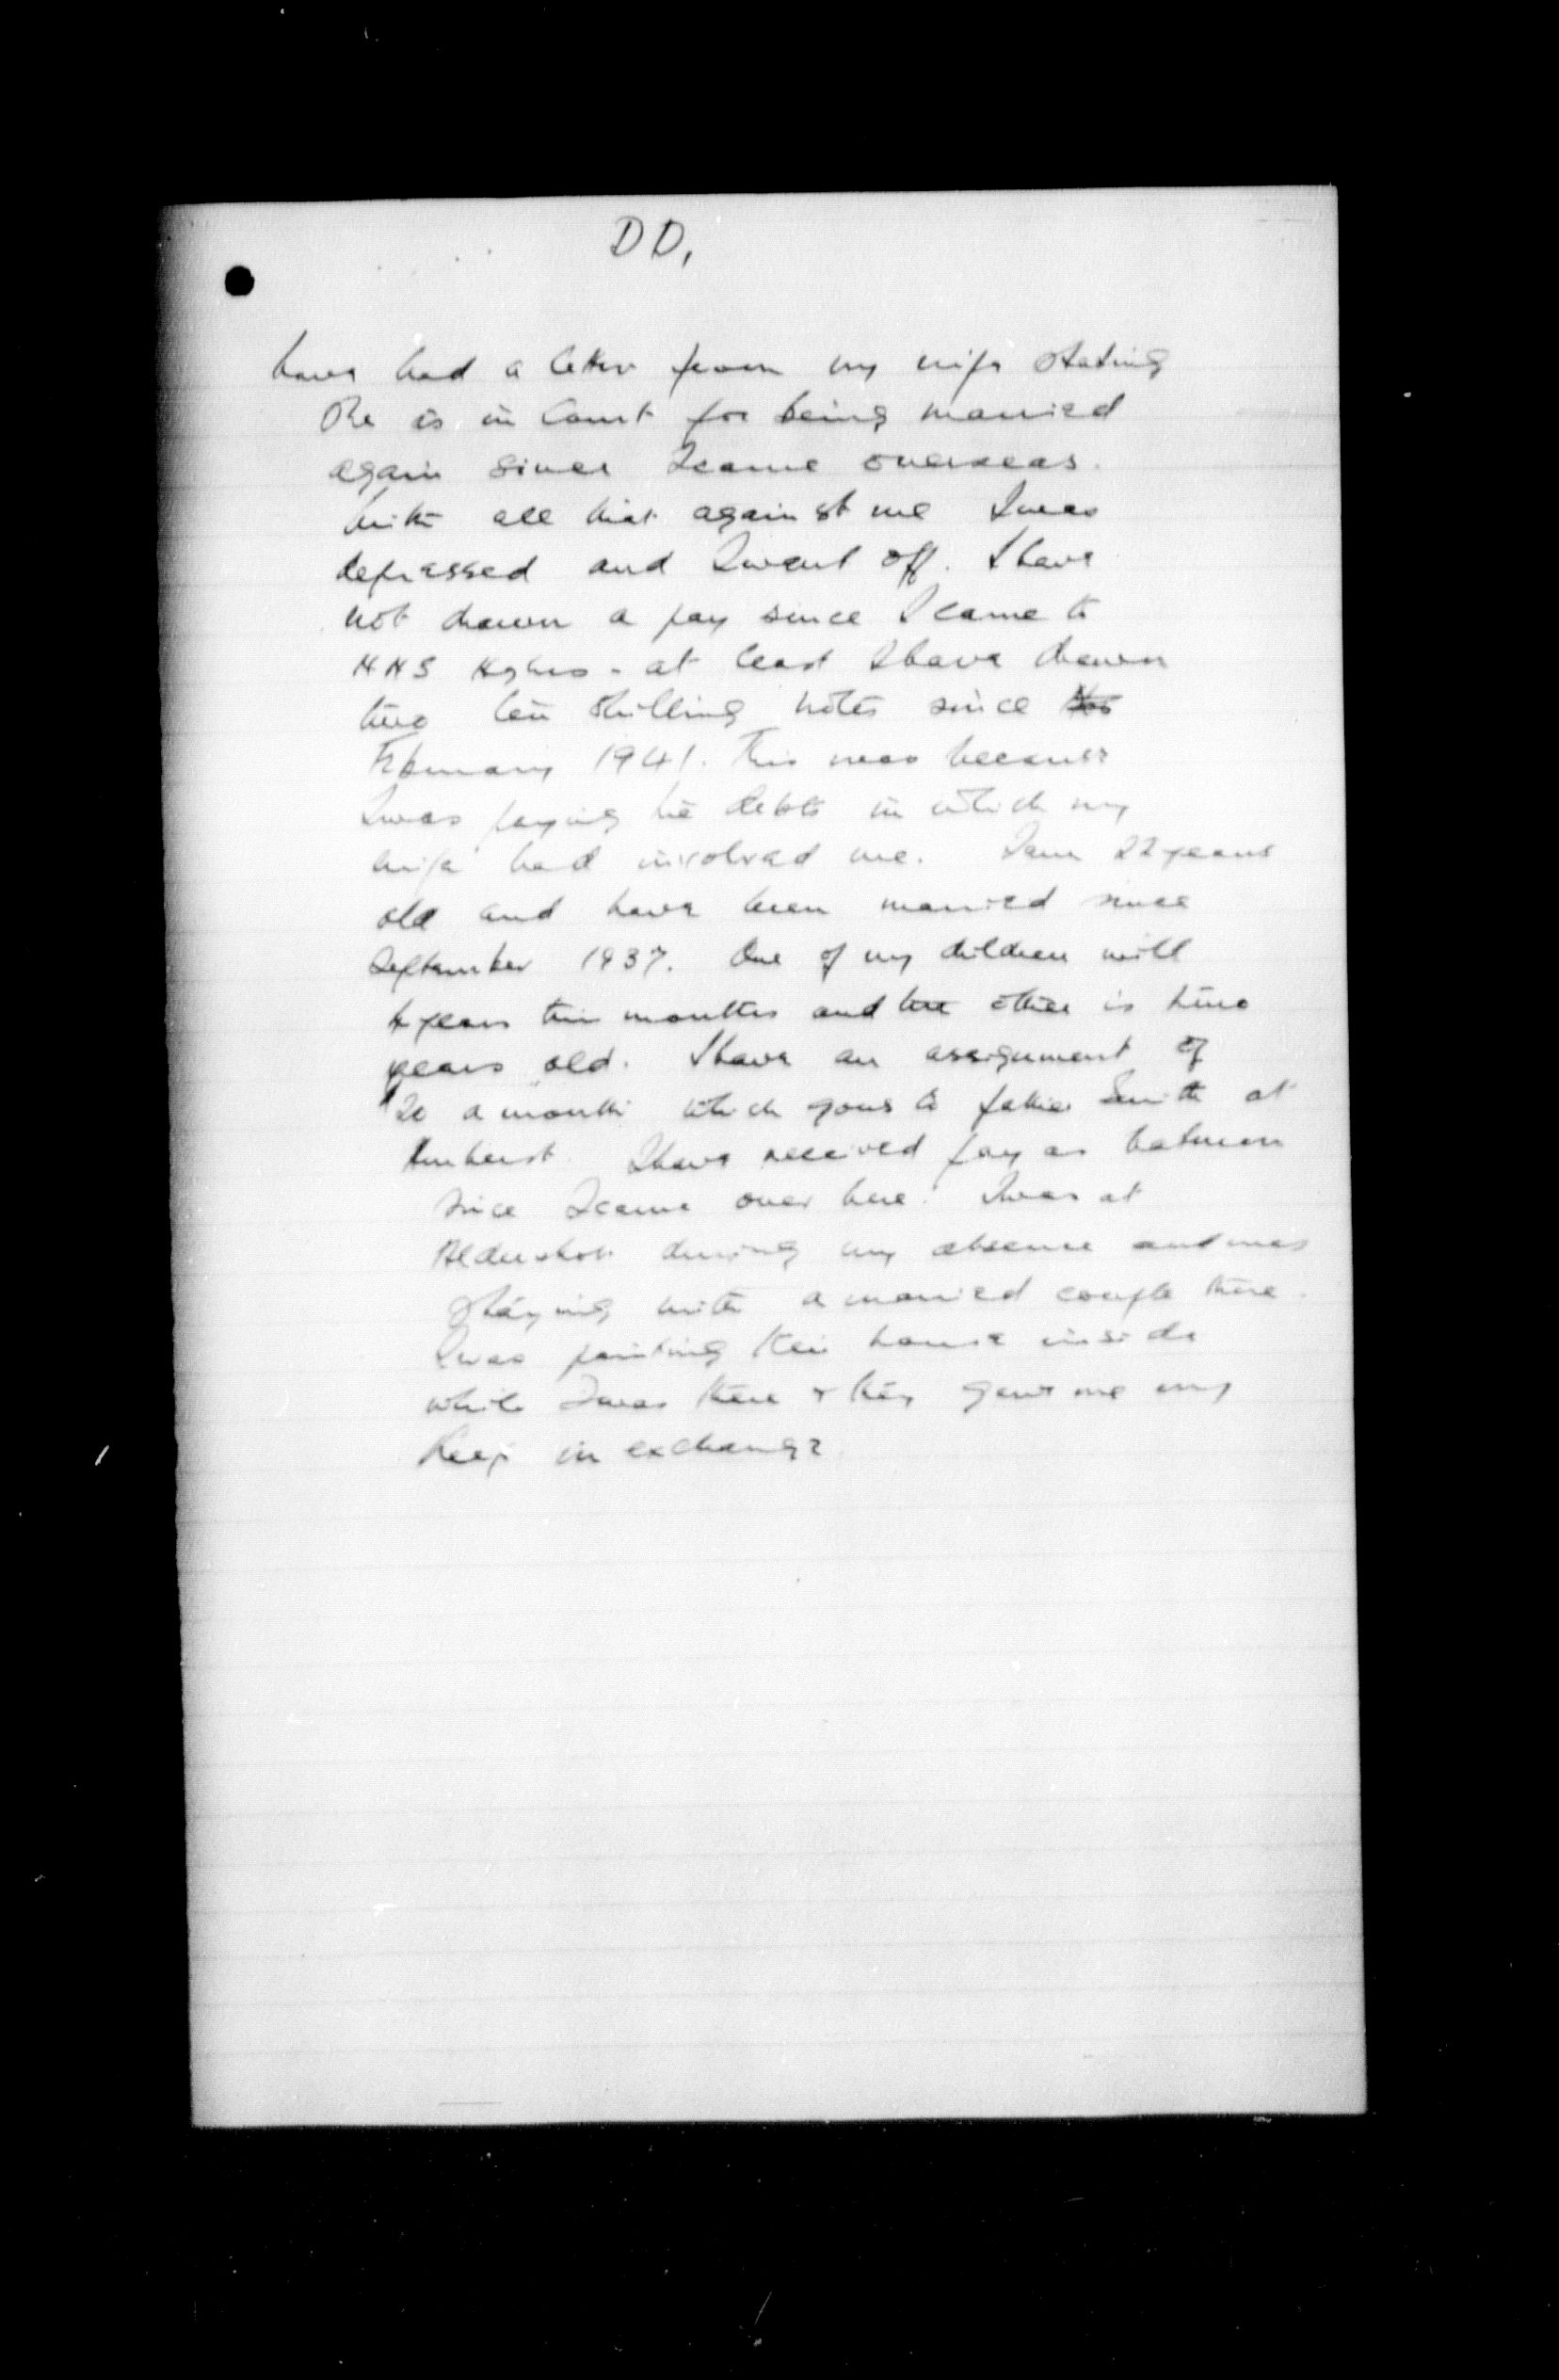 DD,
have had a letter from my wife stating
she is in Court for being married
again since I came overseas.
With all that against me I was
depressed and I went off. I have
not drawn a pay since I came to
HHS - at least I have drawn
two ten shilling notes since
February 1941. This was because
I was paying the debts in which my
wife had involved me. I am 22 years
old and have been married since
September 1937. One of my children will
4 years this months and the other is two
years old. I have an assignment of
$20 a month which goes to father Smith at
Amherst. I have received pay as batman
since I came over here. I was at
Aldershot during my absence and was
staying with a married couple there.
I was painting their house inside
while I was there & they gave me my
keep in exchange